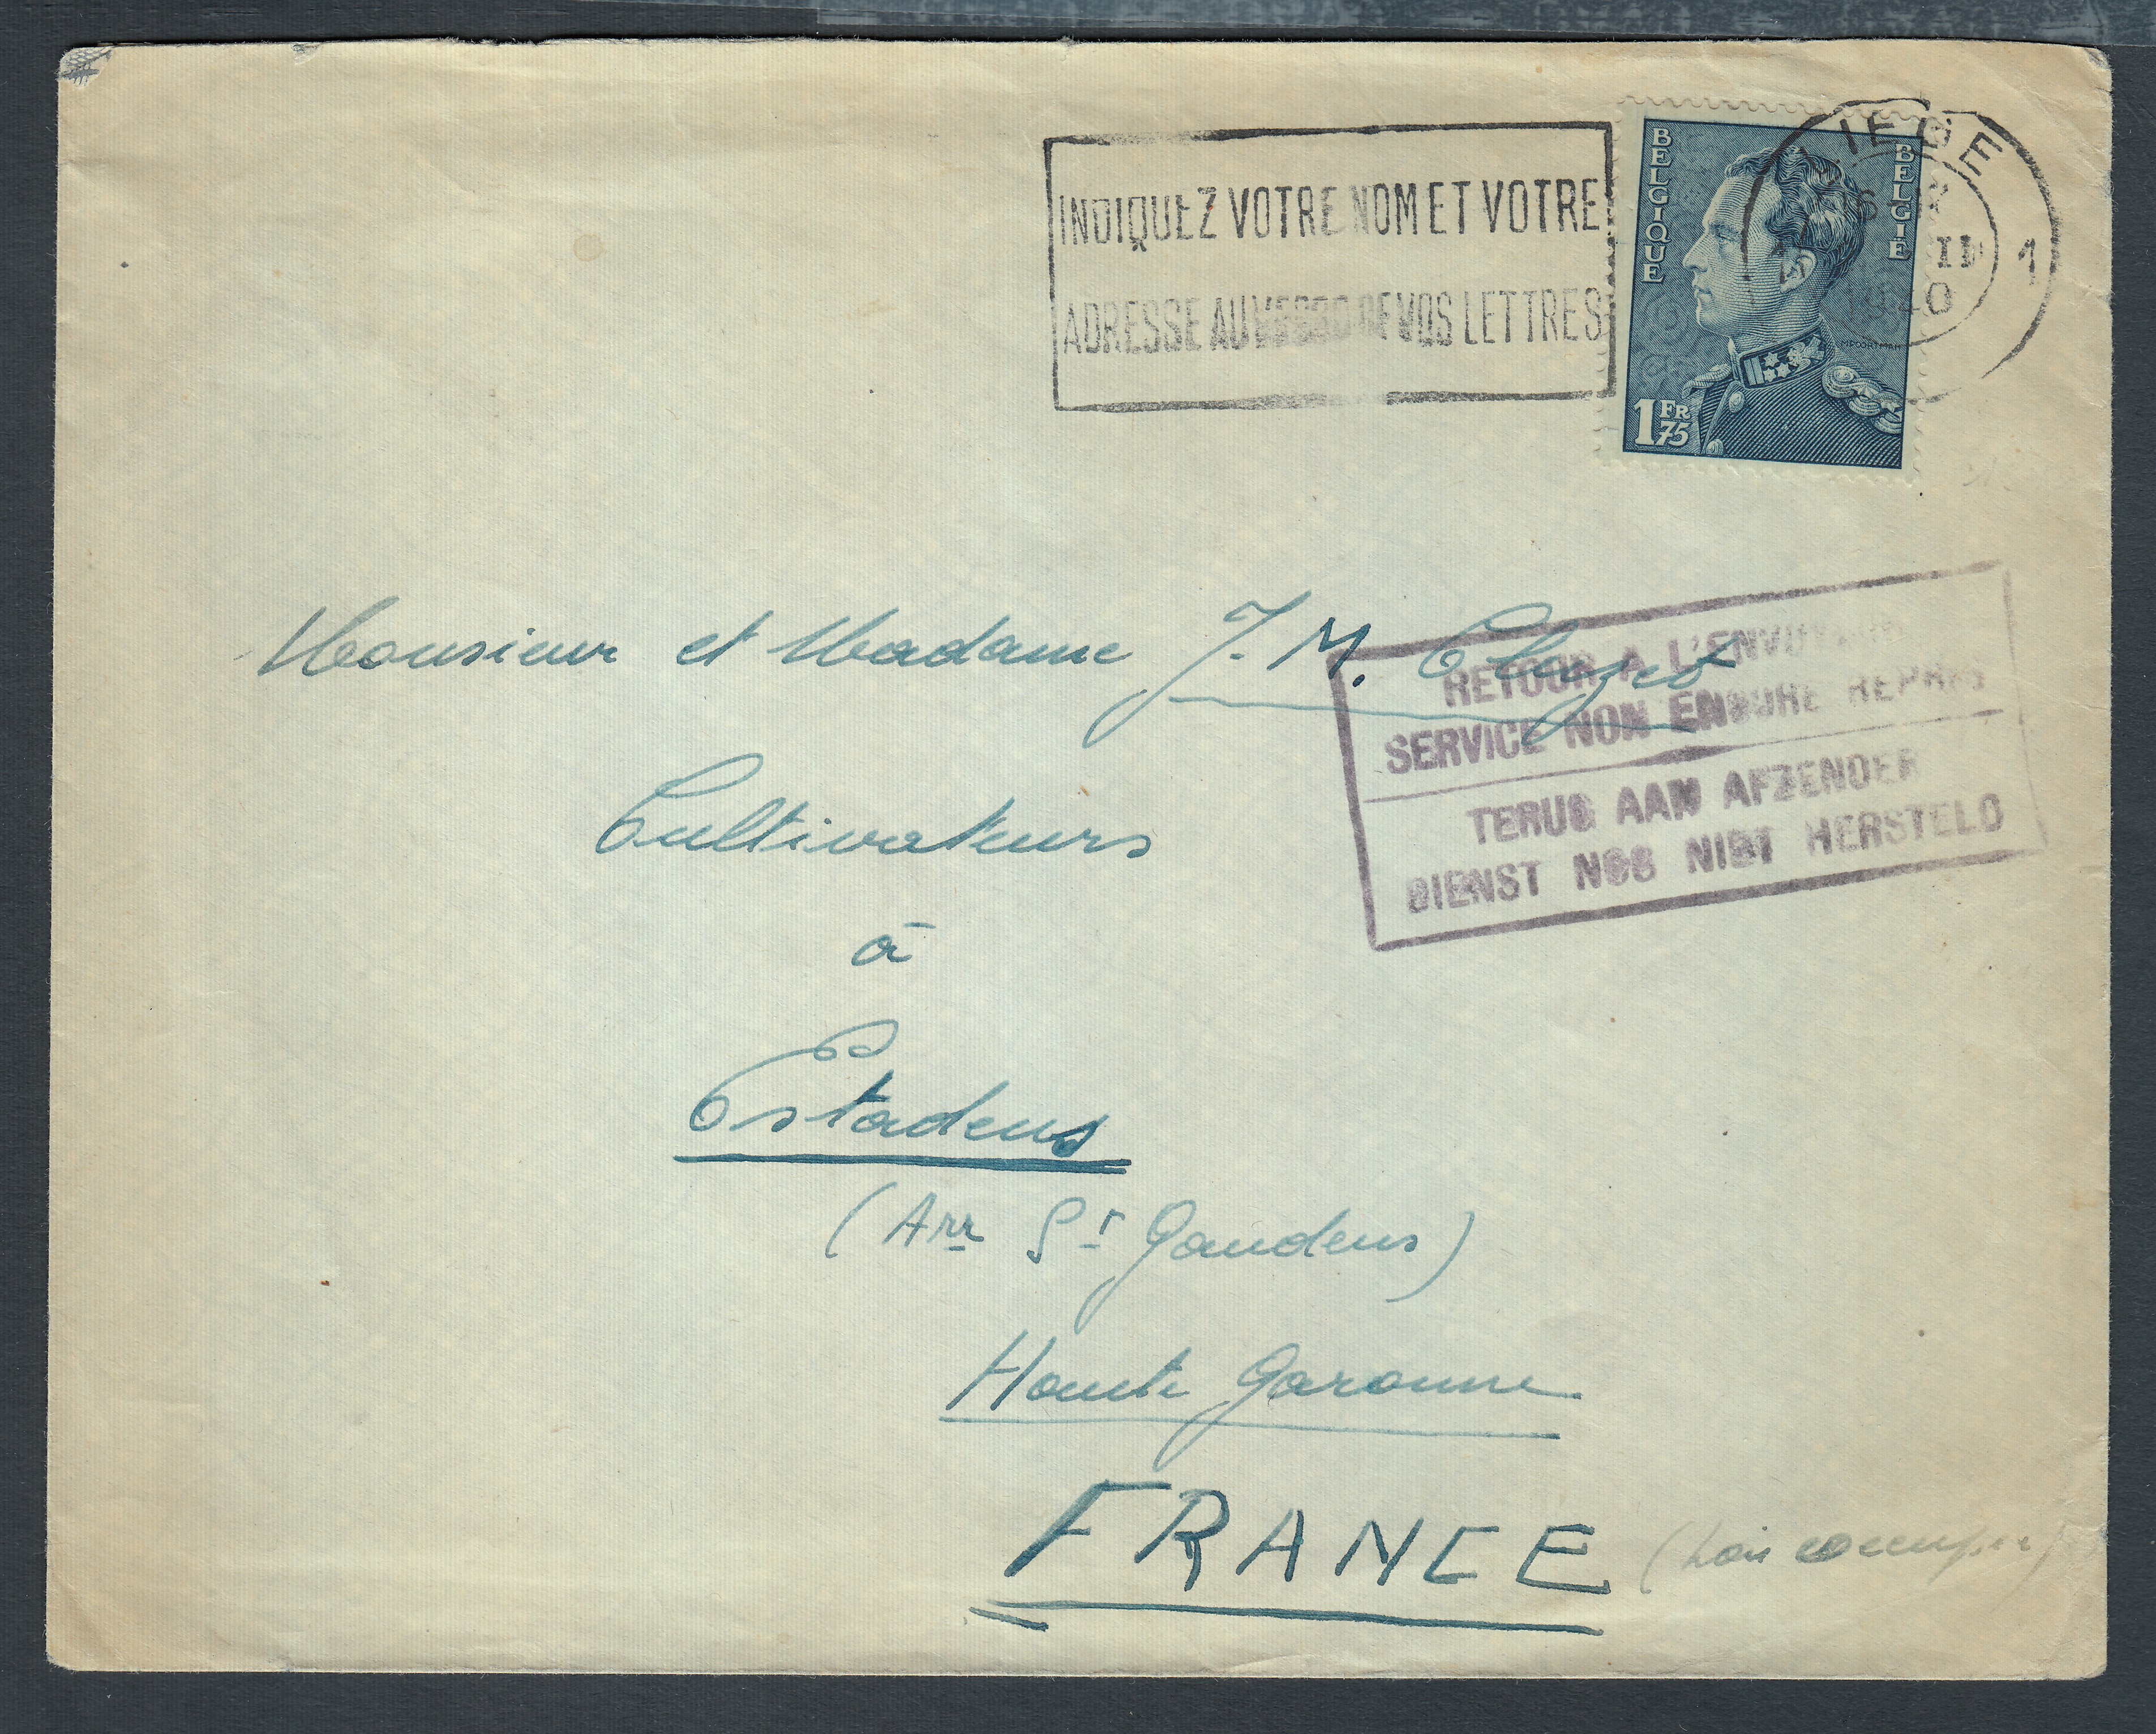 INDIQUEZ VOTRE NOM ET VOTRE
ADRESSE AU VERSO DE VOS LETTRES
BELGIQUE
BELGIË
1 FR 75
LIEGE 1
40
Monsieur et Madame J. M.
RETOUR A L'ENVOYEUR
SERVICE NON ENCORE REPRIS
TERUG AAN AFZENDER
DIENST NOG NIET HERSTELD
Cultivateurs
à
Estadens
(Arr St Gaudens)
Haute Garonne
FRANCE